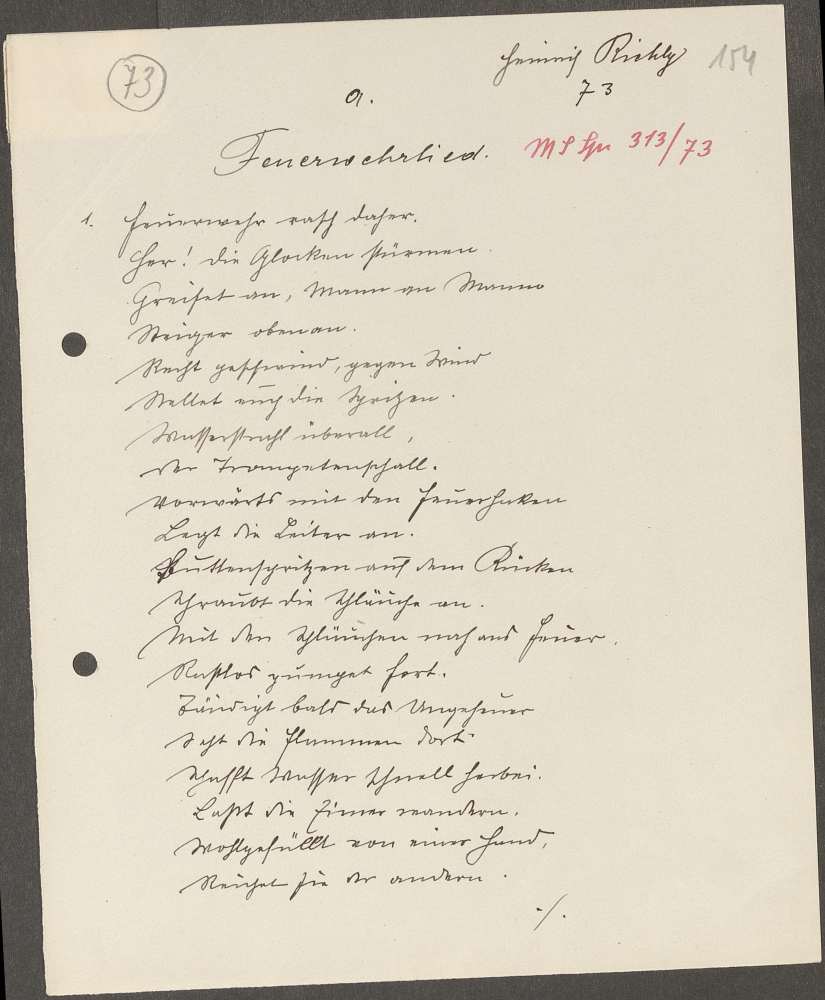 73
Heinrich Richly
154
73
a.
Feuerwehrlied.
313/73
1. Feuerwehr rasch daher.
Hör! die Glocken stürmen.
Greifet an, Mann an Mann
Steiger obenan.
Recht geschwind, gegen Wind
Stellet euch die Spritzen.
Wasserstrahl überall,
der Trompetenschall.
Vorwärts mit den Feuerhaken
Legt die Leiter an.
Buttenspritzen auf dem Rücken
Schraubt die Schläuche an.
Mit den Schläuchen nah ans Feuer.
Rastlos pumpet fort.
Bändigt bald das Ungeheuer
Seht die Flammen dort.
Schafft Wasser schnell herbei.
Laßt die Eimer wandern.
Wohlgefüllt von einer Hand,
Reichet sie der andern.
./.